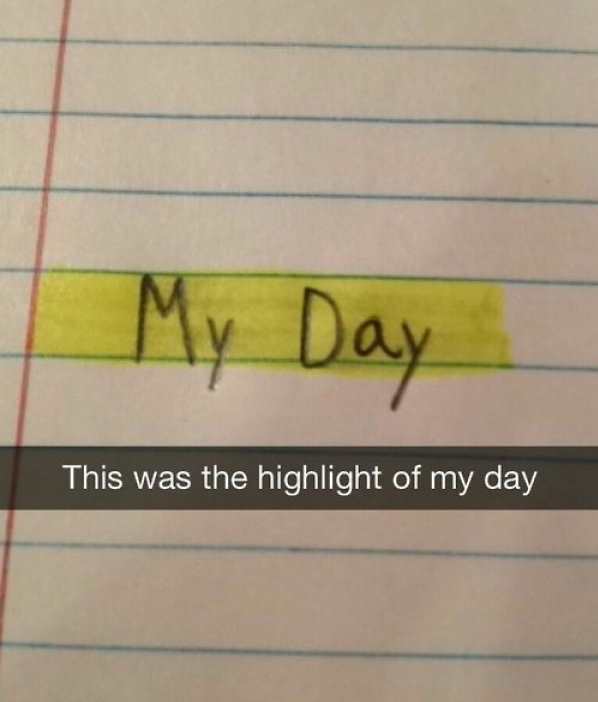 My Day
This was the highlight of my day